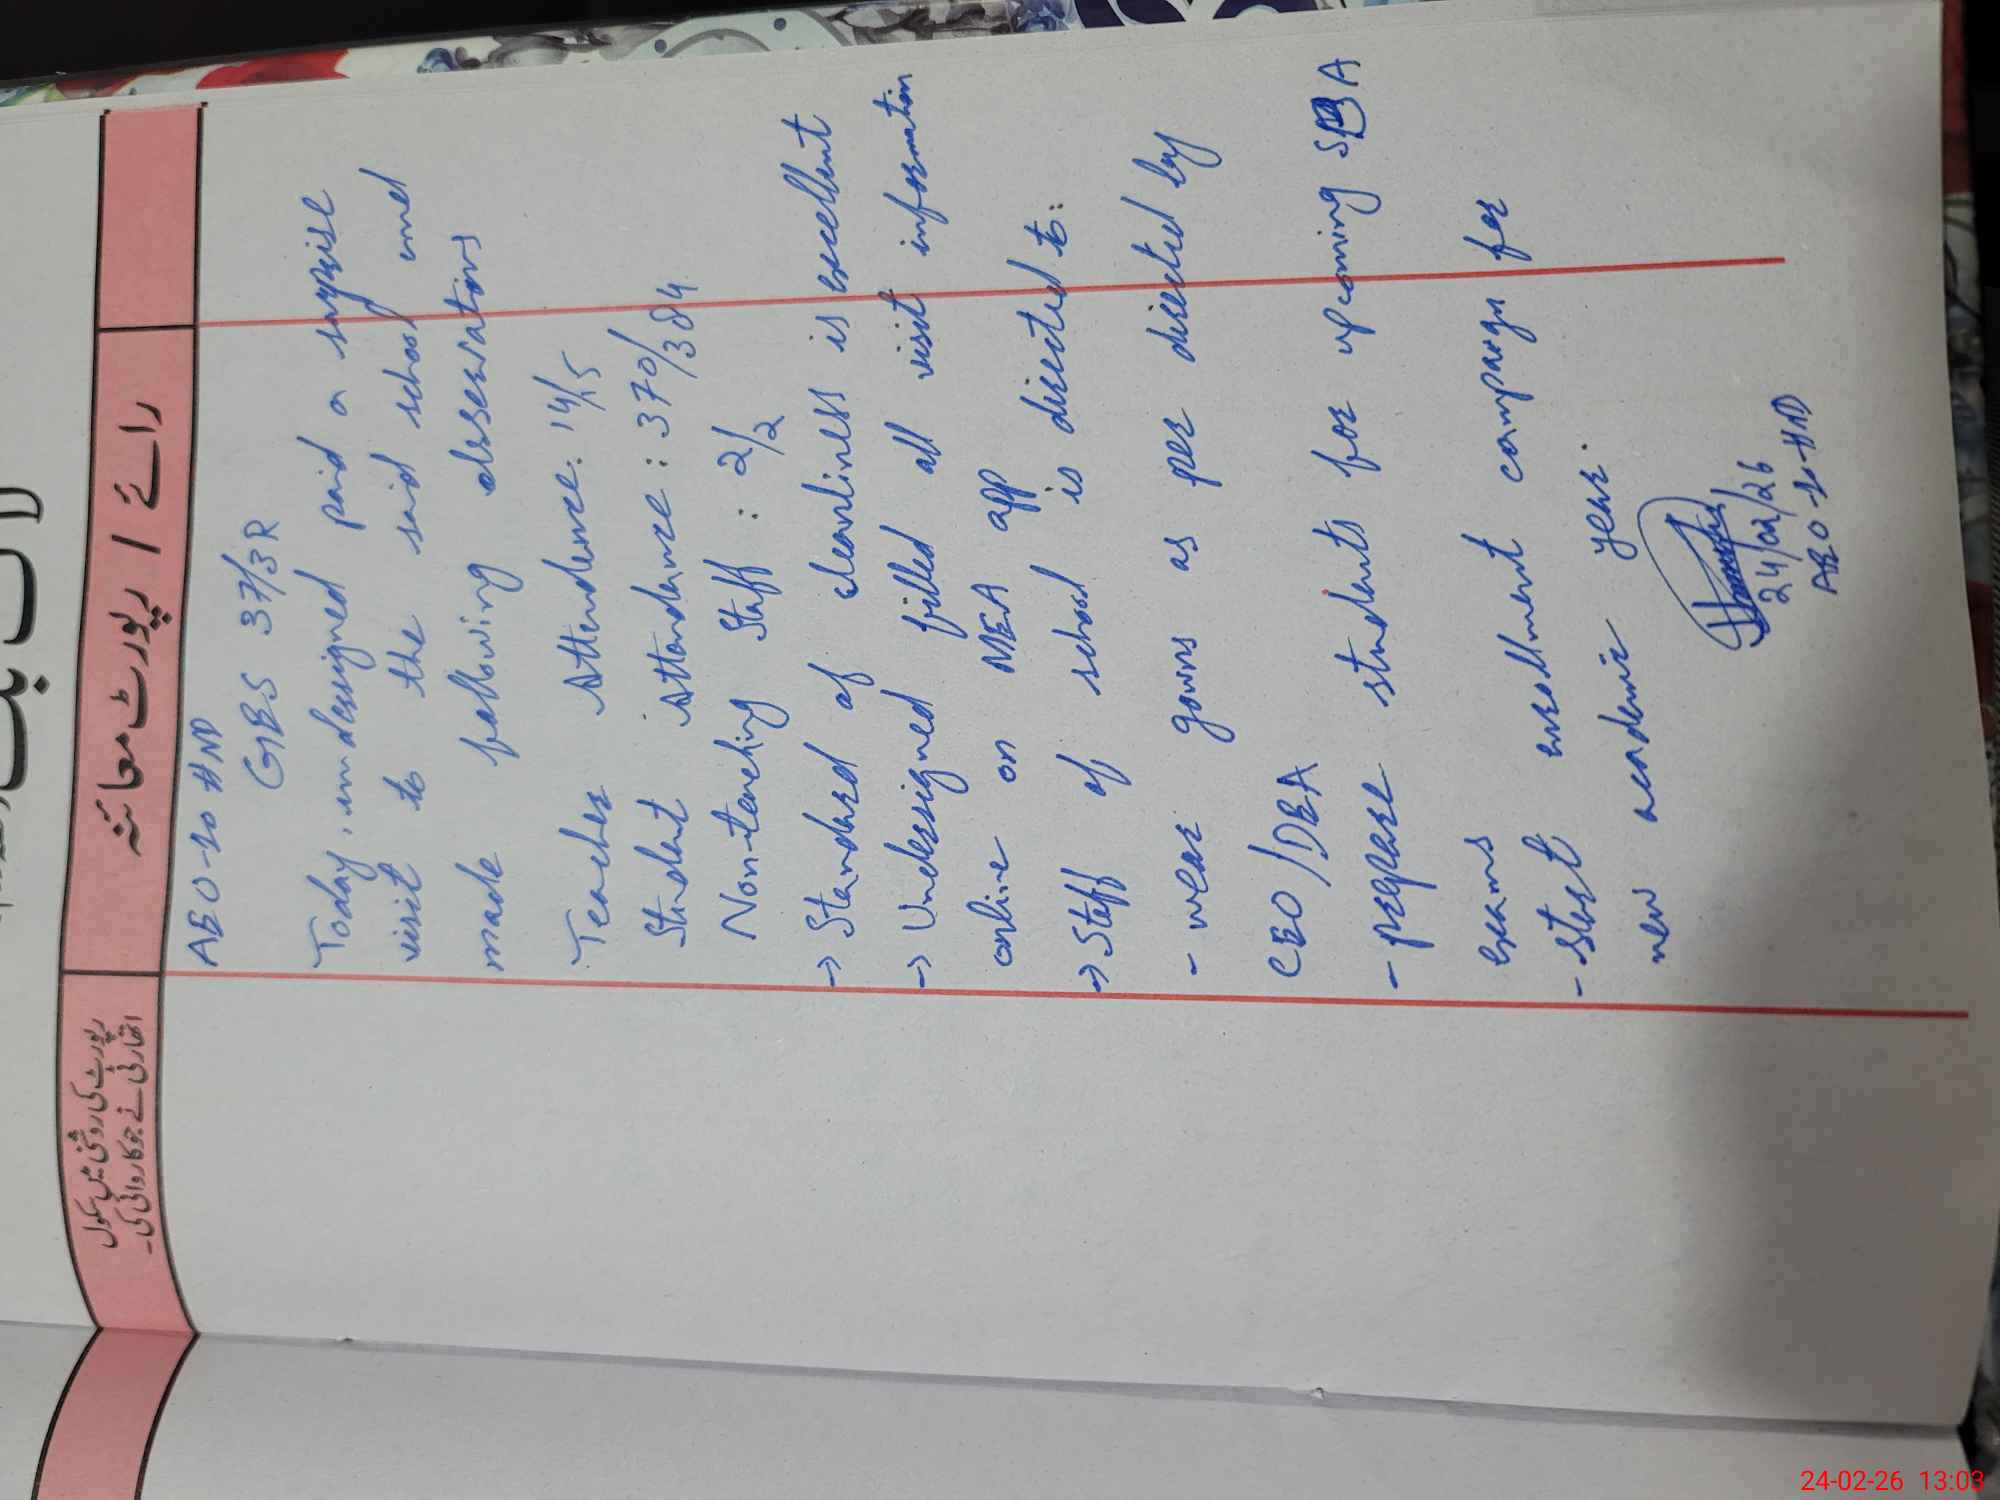 رائے / رپورٹ معائنہ
رپورٹ کی روشنی میں سکول
اتھارٹی نے جو کاروائی کی۔
AEO-20 HND
GES 37/3R
Today, undersigned paid a surprise
visit to the said school and
made following observations
Teacher Attendence: 14/15
Student Attendance: 370/384
Non-teaching Staff: 2/2
→ Standard of cleanliness is excellent
→ Undersigned filled all visit information
online on MEA app
→ Staff of school is directed to:
- wear gowns as per directed by
CEO/DEA
- prepare students for upcoming SBA
exams
- start enrollment campaign for
new academic year.
24/02/26
AEO-20-HND
24-02-26 13:03